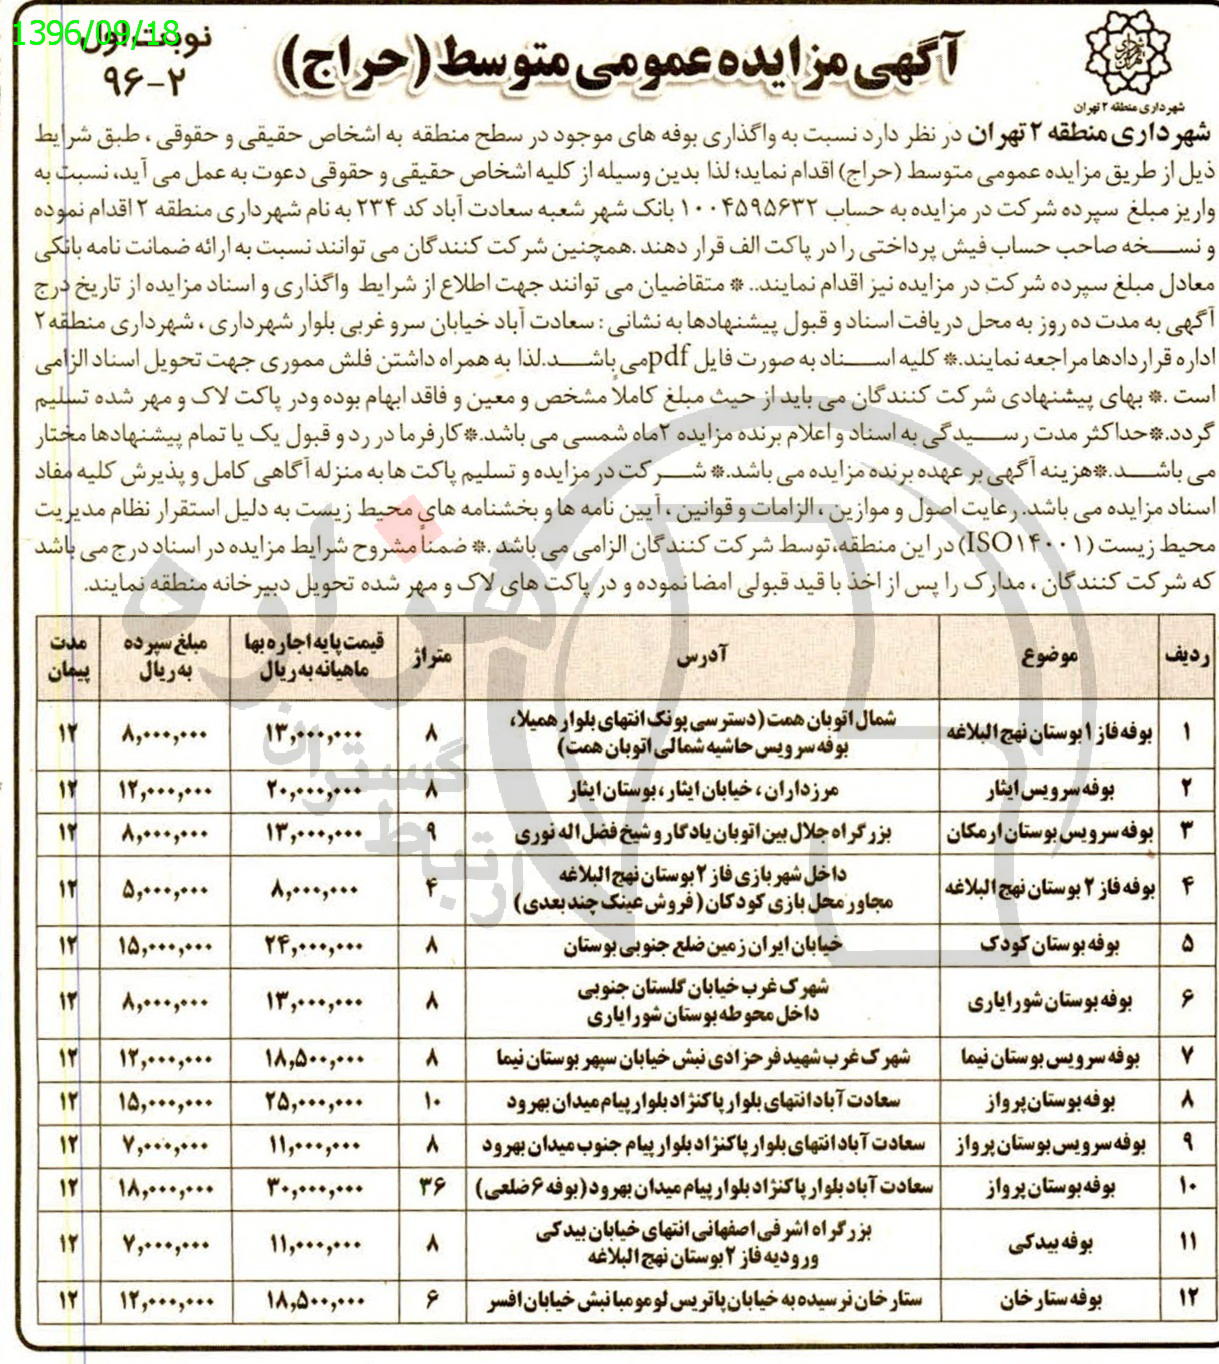 1396/09/18
نوبت اول
۹۶-۲
آگهی مزایده عمومی متوسط (حراج)
شهرداری منطقه ۲ تهران
شهرداری منطقه ۲ تهران در نظر دارد نسبت به واگذاری بوفه های موجود در سطح منطقه به اشخاص حقیقی و حقوقی ، طبق شرایط
ذیل از طریق مزایده عمومی متوسط (حراج) اقدام نماید؛ لذا بدین وسیله از کلیه اشخاص حقیقی و حقوقی دعوت به عمل می آید، نسبت به
واریز مبلغ سپرده شرکت در مزایده به حساب ۱۰۰۴۵۹۵۶۳۲ بانک شهر شعبه سعادت آباد کد ۲۳۴ به نام شهرداری منطقه ۲ اقدام نموده
و نسخه صاحب حساب فیش پرداختی را در پاکت الف قرار دهند .همچنین شرکت کنندگان می توانند نسبت به ارائه ضمانت نامه بانکی
معادل مبلغ سپرده شرکت در مزایده نیز اقدام نمایند.. * متقاضیان می توانند جهت اطلاع از شرایط واگذاری و اسناد مزایده از تاریخ درج
آگهی به مدت ده روز به محل دریافت اسناد و قبول پیشنهادها به نشانی : سعادت آباد خیابان سرو غربی بلوار شهرداری ، شهرداری منطقه ۲
اداره قراردادها مراجعه نمایند.* کلیه اسناد به صورت فایل pdf می باشد.لذا به همراه داشتن فلش مموری جهت تحویل اسناد الزامی
است .* بهای پیشنهادی شرکت کنندگان می باید از حیث مبلغ کاملاً مشخص و معین و فاقد ابهام بوده ودر پاکت لاک و مهر شده تسلیم
گردد.*حداکثر مدت رسیدگی به اسناد و اعلام برنده مزایده ۲ماه شمسی می باشد.*کارفرما در رد و قبول یک یا تمام پیشنهادها مختار
می باشد.*هزینه آگهی بر عهده برنده مزایده می باشد.* شرکت در مزایده و تسلیم پاکت ها به منزله آگاهی کامل و پذیرش کلیه مفاد
اسناد مزایده می باشد. رعایت اصول و موازین ، الزامات و قوانین ، آیین نامه ها و بخشنامه های محیط زیست به دلیل استقرار نظام مدیریت
محیط زیست (ISO۱۴۰۰۱) در این منطقه،توسط شرکت کنندگان الزامی می باشد .* ضمناً مشروح شرایط مزایده در اسناد درج می باشد
که شرکت کنندگان ، مدارک را پس از اخذ با قید قبولی امضا نموده و در پاکت های لاک و مهر شده تحویل دبیرخانه منطقه نمایند.
ردیف موضوع آدرس متراژ قیمت پایه اجاره بها ماهیانه به ریال مبلغ سپرده به ریال مدت پیمان
۱ بوفه فاز ۱ بوستان نهج البلاغه شمال اتوبان همت (دسترسی پونک انتهای بلوار همیلا، بوفه سرویس حاشیه شمالی اتوبان همت) ۸ ۱۳,۰۰۰,۰۰۰ ۸,۰۰۰,۰۰۰ ۱۲
۲ بوفه سرویس ایثار مرزداران ، خیابان ایثار ، بوستان ایثار ۸ ۲۰,۰۰۰,۰۰۰ ۱۲,۰۰۰,۰۰۰ ۱۲
۳ بوفه سرویس بوستان ارمکان بزرگراه جلال بین اتوبان یادگار و شیخ فضل اله نوری ۹ ۱۳,۰۰۰,۰۰۰ ۸,۰۰۰,۰۰۰ ۱۲
۴ بوفه فاز ۲ بوستان نهج البلاغه داخل شهربازی فاز ۲ بوستان نهج البلاغه مجاور محل بازی کودکان (فروش عینک چند بعدی) ۴ ۸,۰۰۰,۰۰۰ ۵,۰۰۰,۰۰۰ ۱۲
۵ بوفه بوستان کودک خیابان ایران زمین ضلع جنوبی بوستان ۸ ۲۴,۰۰۰,۰۰۰ ۱۵,۰۰۰,۰۰۰ ۱۲
۶ بوفه بوستان شورایاری شهرک غرب خیابان گلستان جنوبی داخل محوطه بوستان شورایاری ۸ ۱۳,۰۰۰,۰۰۰ ۸,۰۰۰,۰۰۰ ۱۲
۷ بوفه سرویس بوستان نیما شهرک غرب شهید فرحزادی نبش خیابان سپهر بوستان نیما ۸ ۱۸,۵۰۰,۰۰۰ ۱۲,۰۰۰,۰۰۰ ۱۲
۸ بوفه بوستان پرواز سعادت آباد انتهای بلوار پاکنژاد بلوار پیام میدان بهرود ۱۰ ۲۵,۰۰۰,۰۰۰ ۱۵,۰۰۰,۰۰۰ ۱۲
۹ بوفه سرویس بوستان پرواز سعادت آباد انتهای بلوار پاکنژاد بلوار پیام جنوب میدان بهرود ۸ ۱۱,۰۰۰,۰۰۰ ۷,۰۰۰,۰۰۰ ۱۲
۱۰ بوفه بوستان پرواز سعادت آباد بلوار پاکنژاد بلوار پیام میدان بهرود (بوفه ۶ ضلعی) ۳۶ ۳۰,۰۰۰,۰۰۰ ۱۸,۰۰۰,۰۰۰ ۱۲
۱۱ بوفه بیدکی بزرگراه اشرفی اصفهانی انتهای خیابان بیدکی ورودیه فاز ۲ بوستان نهج البلاغه ۸ ۱۱,۰۰۰,۰۰۰ ۷,۰۰۰,۰۰۰ ۱۲
۱۲ بوفه ستارخان ستارخان نرسیده به خیابان پاتریس لومومبا نبش خیابان افسر ۶ ۱۸,۵۰۰,۰۰۰ ۱۲,۰۰۰,۰۰۰ ۱۲
هزاره
ارتباط گستران